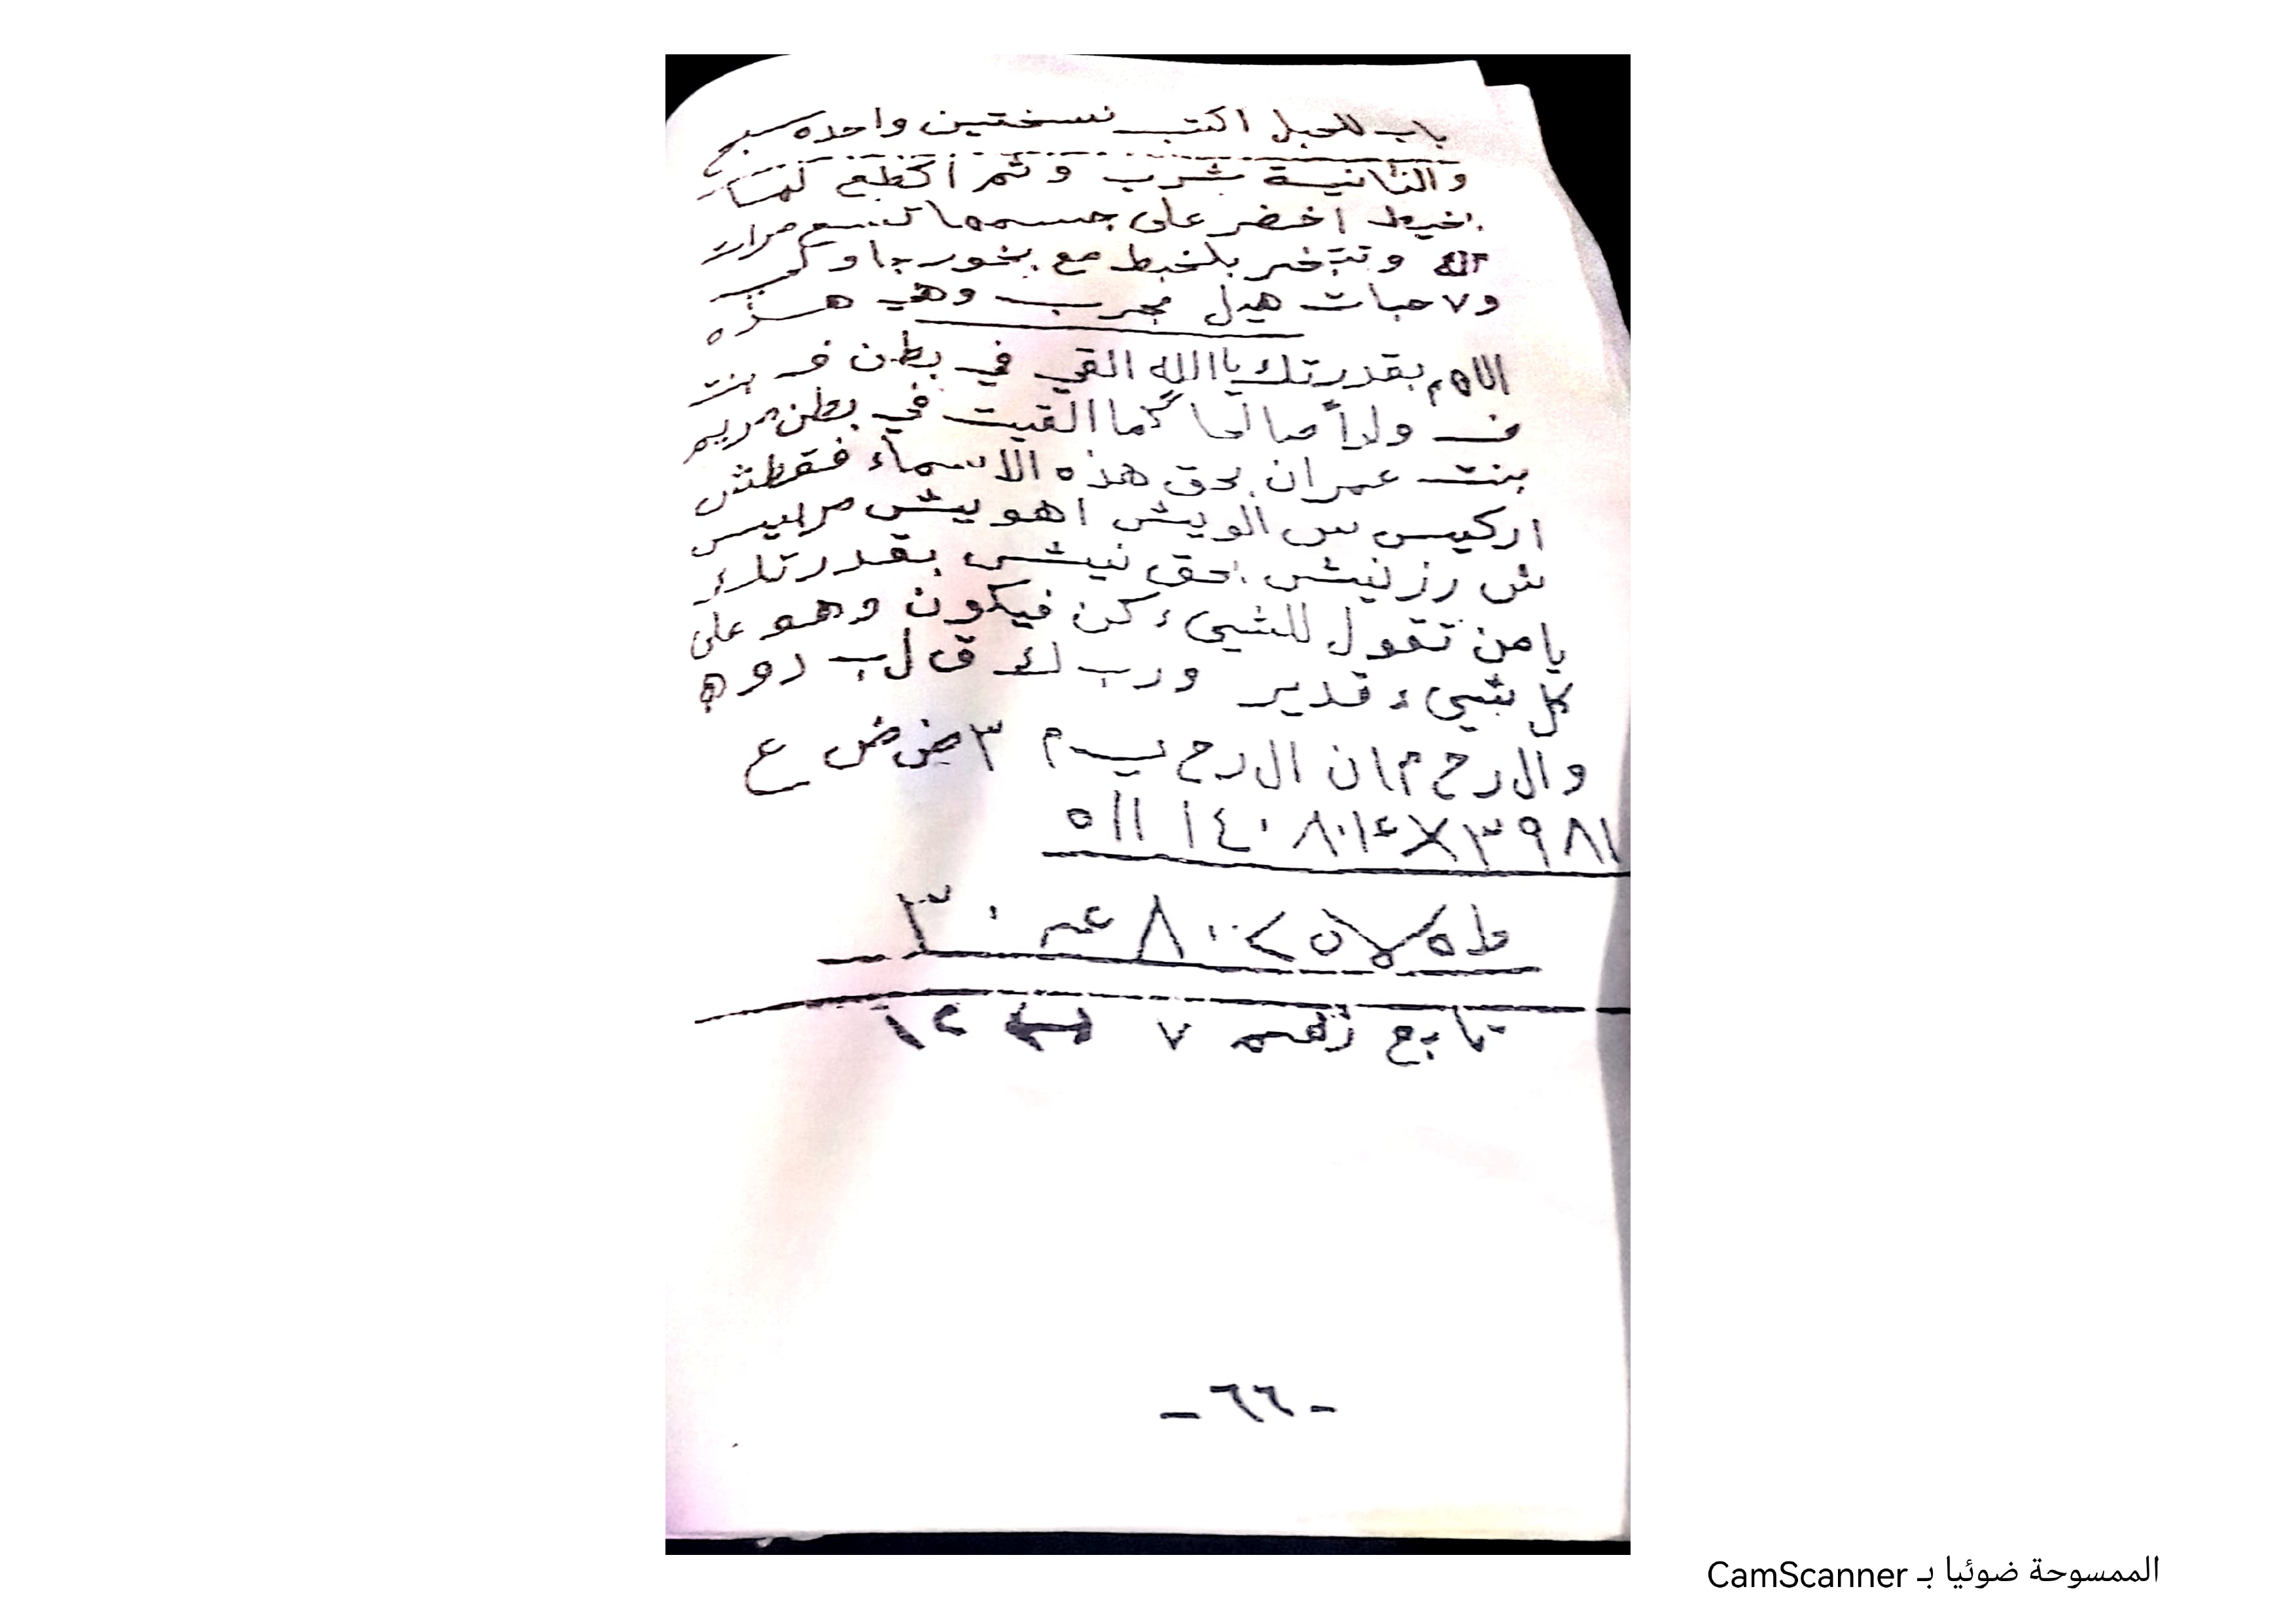 باب للحبل اكتب نسختين واحده سبح
والثانية شرب وثم اكطع لها
بخيط اخضر على جسمها تسع مرار
وتتبخر بلخيط مع بخور جاوي
و٧ حبات هيل مجرب وهي هذه
اللاهم بقدرتك ياالله القي في بطن ف بنت
ف ولداً صالحا كما القيت في بطن مريم
بنت عمران بحق هذه الاسماء فقطش
اركيس س الويش اهويش مرييس
ش رزنيش بحق نيش بقدرتك
يامن تقول للشيىء كن فيكون وهو على
كل شيىء قدير ورب ك ق ل ب روه
وال رح م ا ن ال رح ي م ٣ ض ض ع
٣٩٨١ ٨٠١٤ ١٤٠ ٥١١
ط ٥ ٨ ٣٠
تابع رقم ٧
- ٦٦ -
الممسوحة ضوئيا بـ CamScanner